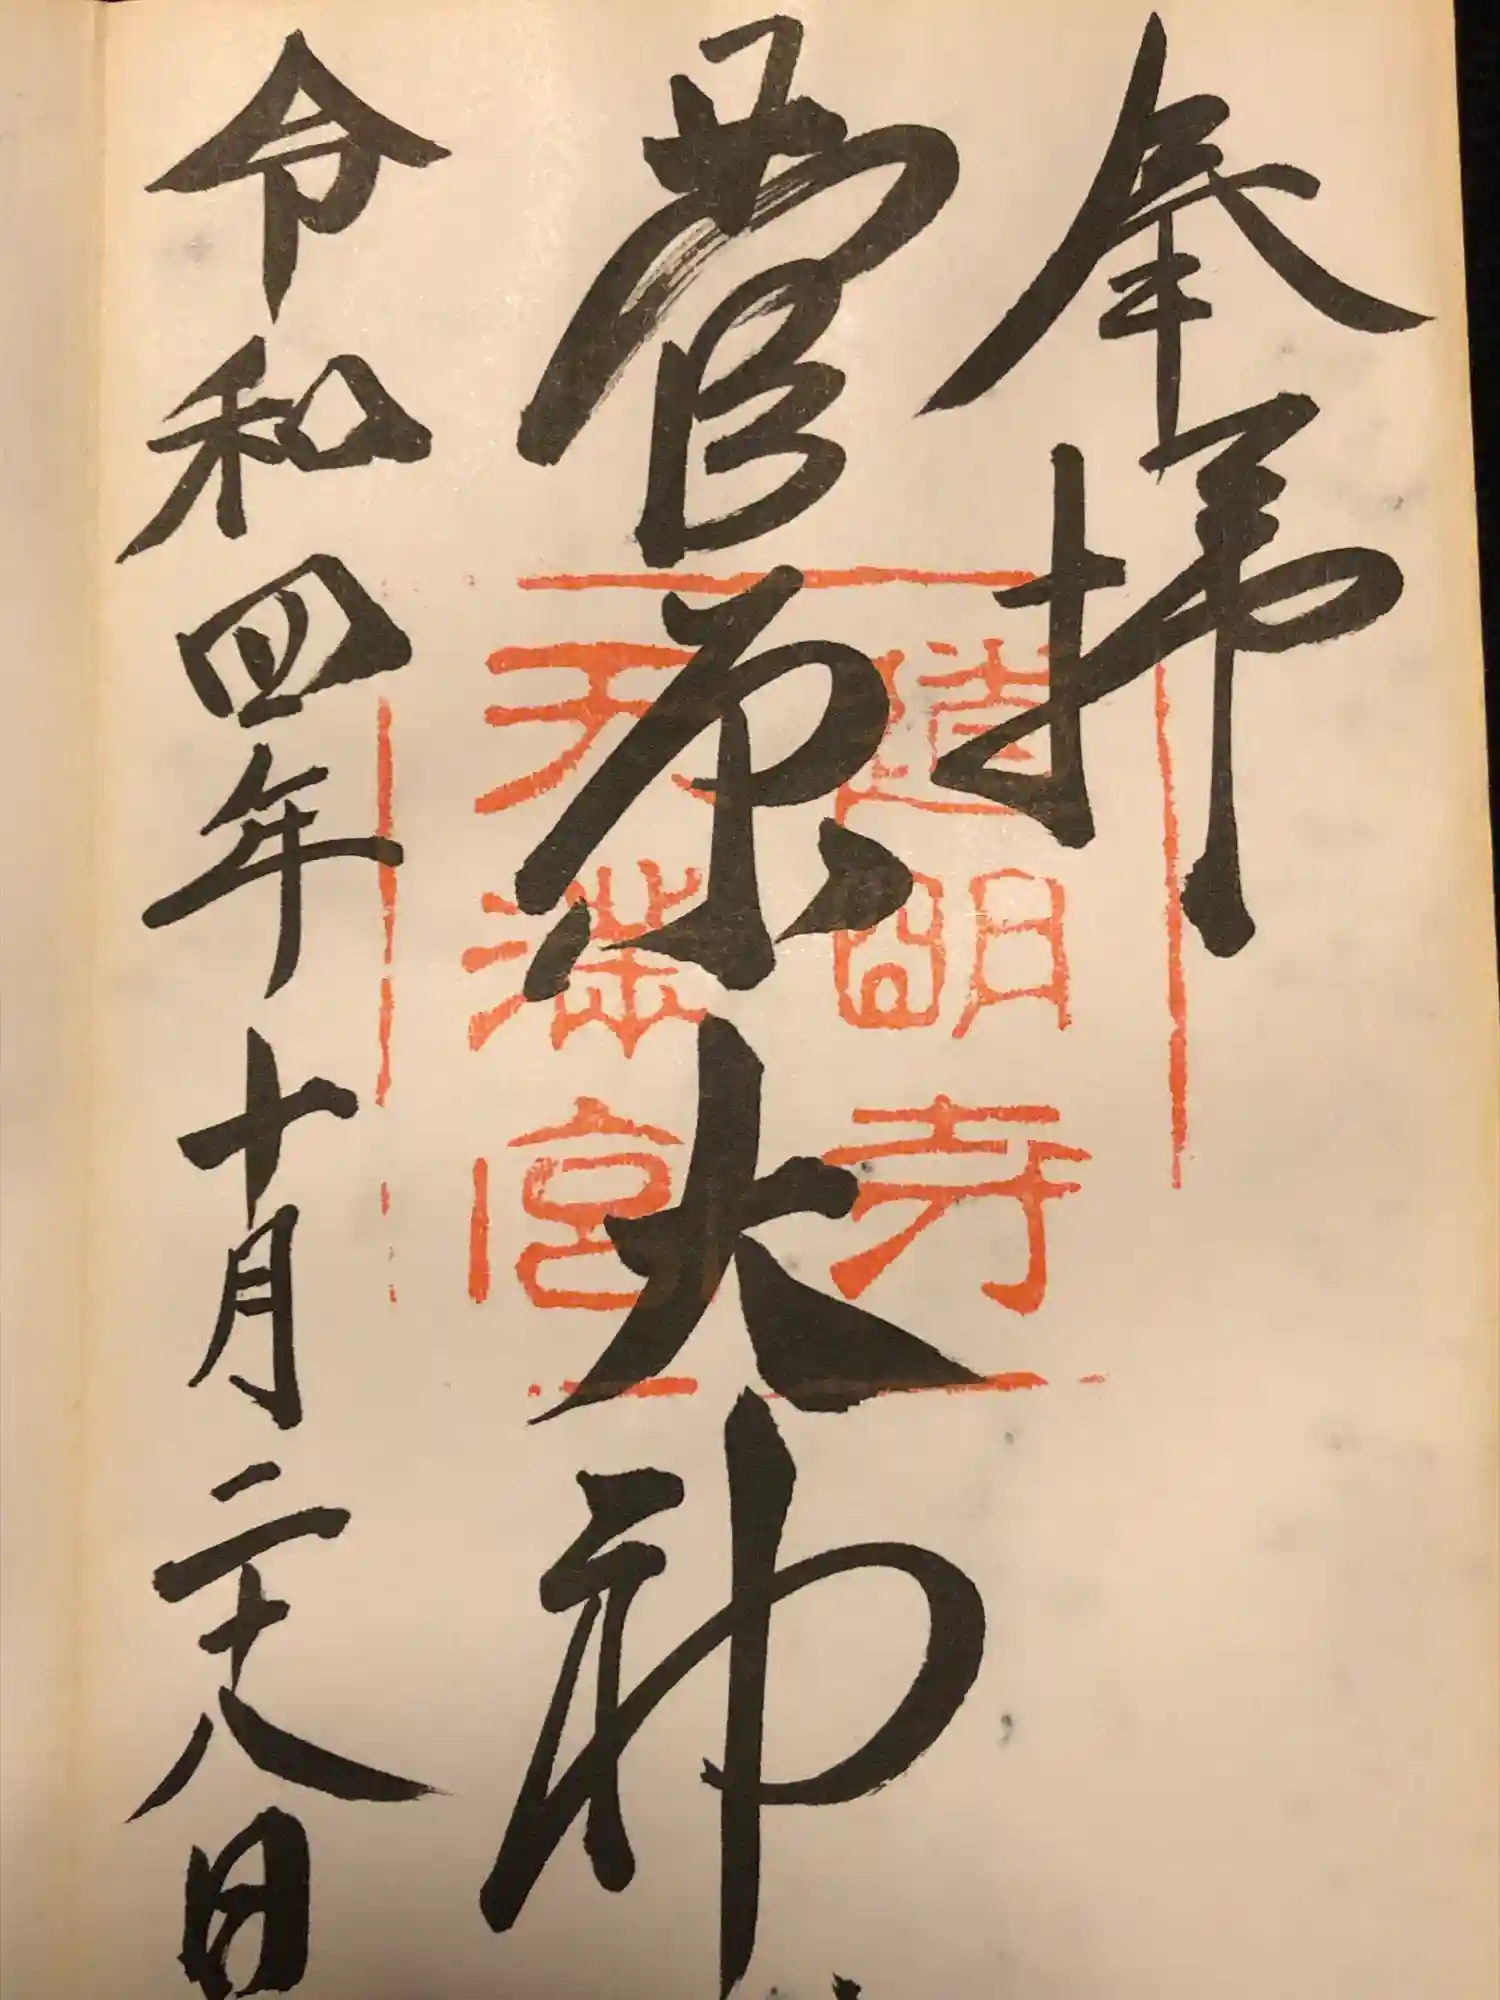 奉拝
菅原大神
道明寺
天満宮
令和四年十月二十八日